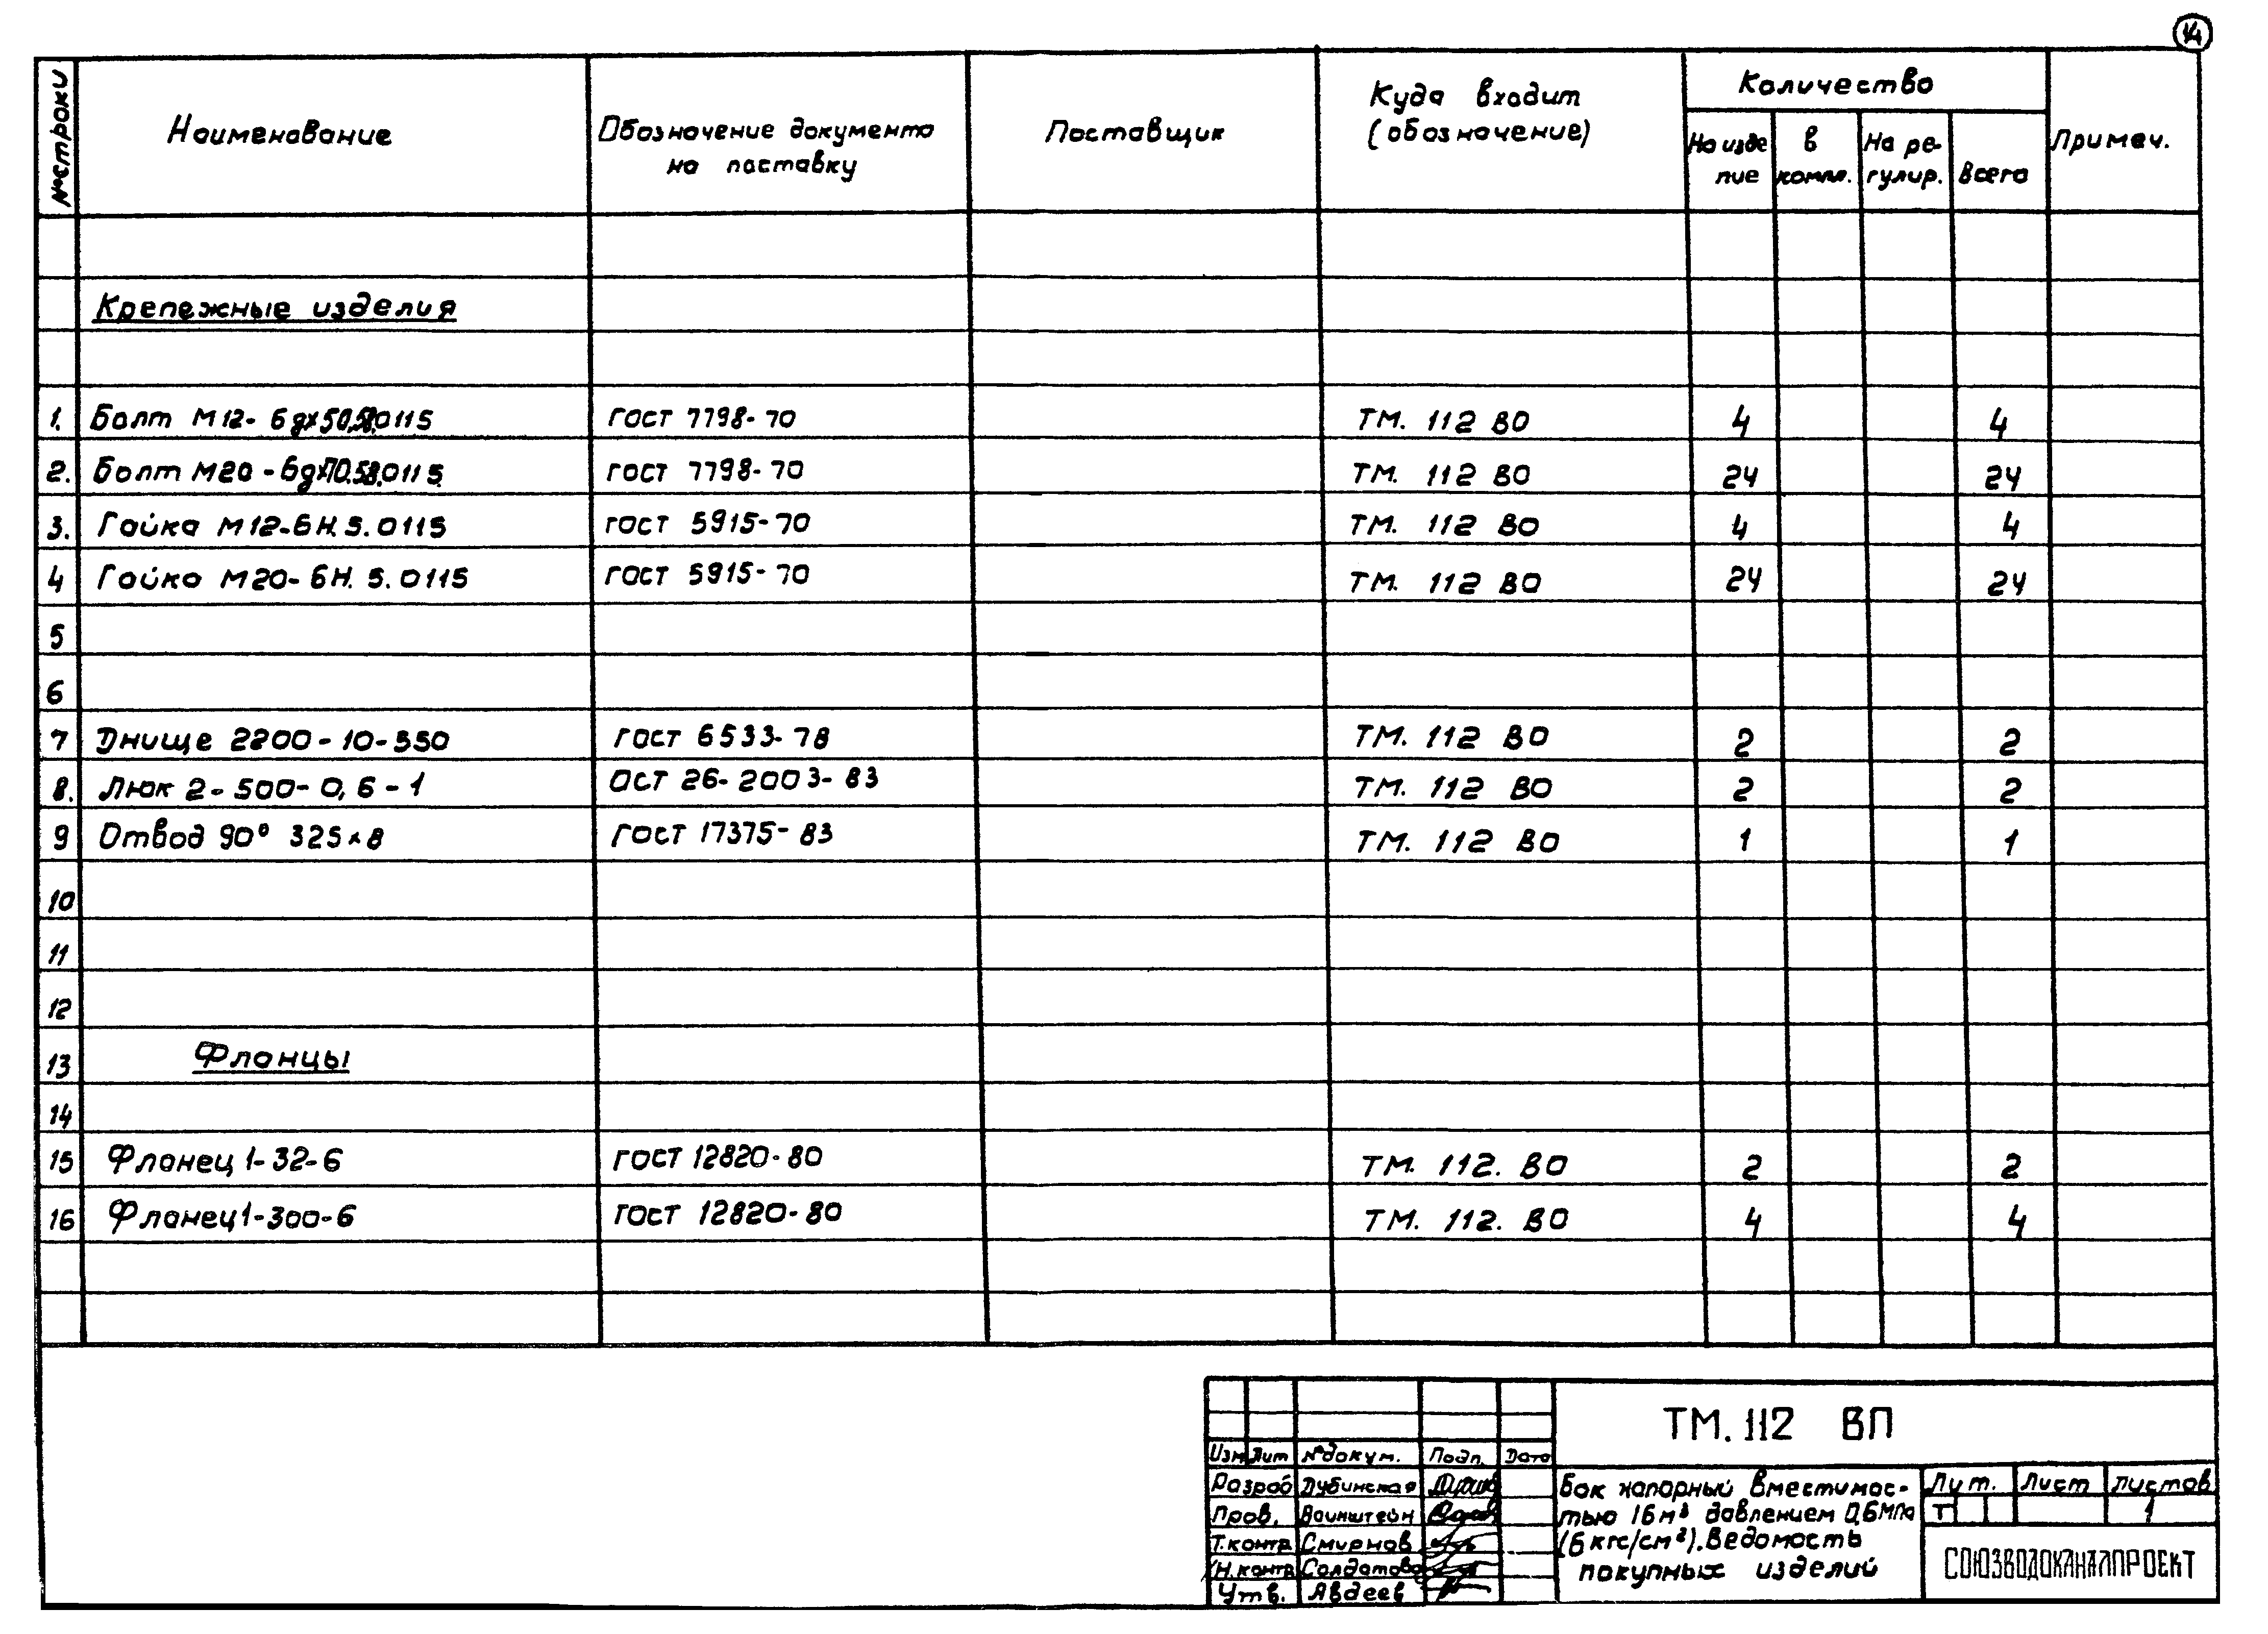 14
№ строки
Наименование
Обозначение документа
на поставку
Поставщик
Куда входит
(обозначение)
Количество
На изде
лие
в
компл.
На ре-
гулир.
Всего
Примеч.
Крепежные изделия
1. Болт М12-6gх50.58.0115 ГОСТ 7798-70 ТМ. 112 ВО 4 4
2. Болт М20-6gх70.58.0115 ГОСТ 7798-70 ТМ. 112 ВО 24 24
3. Гайка М12-6Н.5.0115 ГОСТ 5915-70 ТМ. 112 ВО 4 4
4 Гайка М20-6Н.5.0115 ГОСТ 5915-70 ТМ. 112 ВО 24 24
5
6
7 Днище 2200-10-550 ГОСТ 6533-78 ТМ. 112 ВО 2 2
8. Люк 2-500-0,6-1 ОСТ 26-2003-83 ТМ. 112 ВО 2 2
9 Отвод 90° 325х8 ГОСТ 17375-83 ТМ. 112 ВО 1 1
10
11
12
13 Фланцы
14
15 Фланец 1-32-6 ГОСТ 12820-80 ТМ. 112. ВО 2 2
16 Фланец 1-300-6 ГОСТ 12820-80 ТМ. 112. ВО 4 4
ТМ.112 ВП
Изм Лит № докум. Подп. Дата
Разраб Дубинская
Пров. Вайнштейн
Т.контр Смирнов
Н.контр Солдатова
Утв. Авдеев
Бак напорный вместимос-
тью 16м³ давлением 0,6МПа
(6 кгс/см²). Ведомость
покупных изделий
Лит. Лист Листов
Т 1
СОЮЗВОДОКАНАЛПРОЕКТ